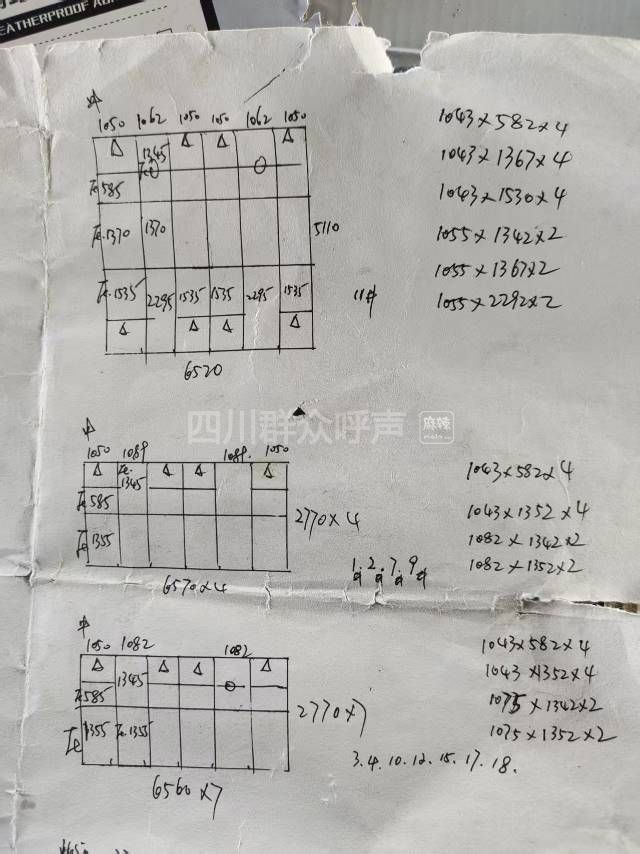 EATHERPROOF
1050 1062 1050 1050 1062 1050
1345
585
1370 1370
5110
1535 2295 1535 1535 2295 1535
6520
11#
1043×582×4
1043×1367×4
1043×1530×4
1055×1342×2
1055×1367×2
1055×2292×2
四川群众呼声
麻辣
1050 1089 1089. 1050
1345
585
1355
2770×4
6570×4
1. 2. 7. 9
1043×582×4
1043×1352×4
1082×1342×2
1082×1352×2
1050 1082 1082
1345
585
1355 1355
2770×7
6560×7
1043×582×4
1043×1352×4
1075×1342×2
1075×1352×2
3.4.10.12.15.17.18.